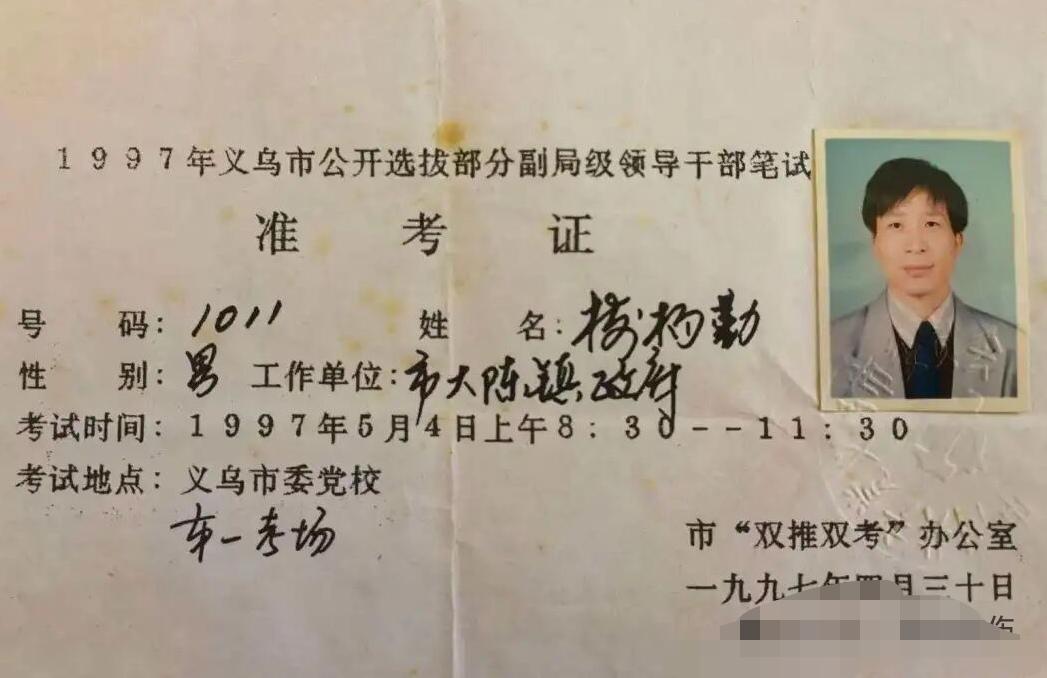 1997年义乌市公开选拔部分副局级领导干部笔试
准考证
号码：1011 姓名：楼柏勤
性别：男 工作单位：市大陈镇政府
考试时间：1997年5月4日上午8：30--11：30
考试地点：义乌市委党校
第一考场
市“双推双考”办公室
一九九七年四月三十日